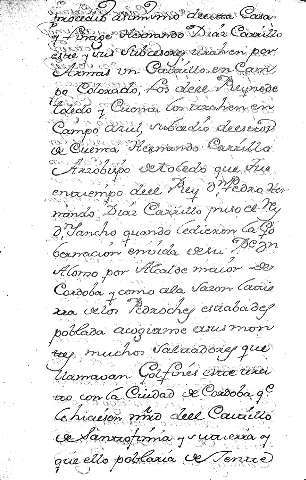 procedio dominio de esta Casa
y Linage Hernando Diaz Carrillo
este y sus Subcesores trahen por
Armas un Castillo en Cam
po Colorado, Los de el Reyno de
toledo y Cuenca los trahen en
Campo azul, subcedio de estos
de Cuenca Hernando Carrillo
Arzobispo de toledo que fue
en tiempo de el Rey Dn Pedro
nando Diaz Carrillo puso el Rey
Dn Sancho quando le dieron la Go
bernacion en vida de su
Alonso por Alcalde maior de
Cordoba y como a la sazon la
rra de los Pedroches estaba des
poblada acogianse a sus mon
tes muchos Salteadores que
llamavan Golfines este
tro con la Ciudad de Cordoba qe
le hiciesen mrd de el Castillo
de Santofimia y su tierra y
que el lo poblaria de Jente